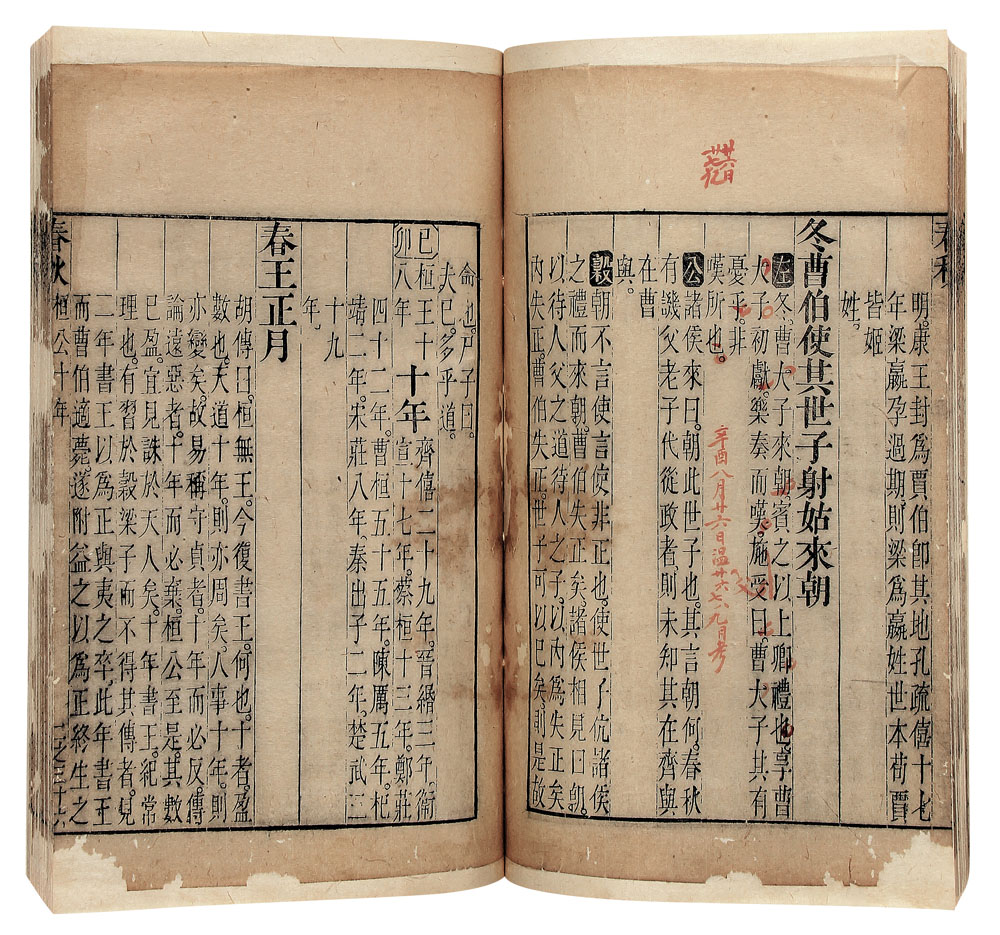 廿六日
廿七完
春秋
明。康王封爲賈伯卽其地孔疏僖十七
年梁嬴孕過期則梁爲嬴姓世本荀賈
皆姬
姓。
冬曹伯使其世子射姑來朝
左冬。曹大子來朝。賓之以上卿。禮也。享曹
大子。初獻。樂奏而嘆。施父曰。曹大子其有
憂乎。非
嘆所也。
辛酉八月廿六日温廿六七八九月考
公諸侯來曰。朝此世子也。其言朝何。春秋
有譏父老子代從政者。則未知其在齊與
在曹
與。
穀朝不言使言使非正也。使世子伉諸侯
之禮而來朝。曹伯失正矣。諸侯相見曰朝。
以待人父之道待人之子。以內爲失正矣。
內失正。曹伯失正。世子可以已矣。則是故
命也。尸子曰。
夫已。多乎道。
己卯
桓王十
八年
十年
齊僖二十九年。晉緡三年。衛
宣十七年。蔡桓十三年。鄭莊
四十二年。曹桓五十五年。陳厲五年。杞
靖二年。宋莊八年。秦出子二年。楚武三
十九
年。
春王正月
胡傳曰。桓無王。今復書王。何也。十者。盈
數也。天道十年。則亦周矣。人事十年。則
亦變矣。故易稱守貞者。十年而必反。傳
論遠惡者。十年而必棄。桓公至是。其數
已盈。宜見誅於天人矣。十年書王。紀常
理也。有習於穀梁子而不得其傳者。見
二年書王以爲正與夷之卒。此年書王
而曹伯適薨。遂附益之以爲正終生之
春秋
桓公十年
一之三十六